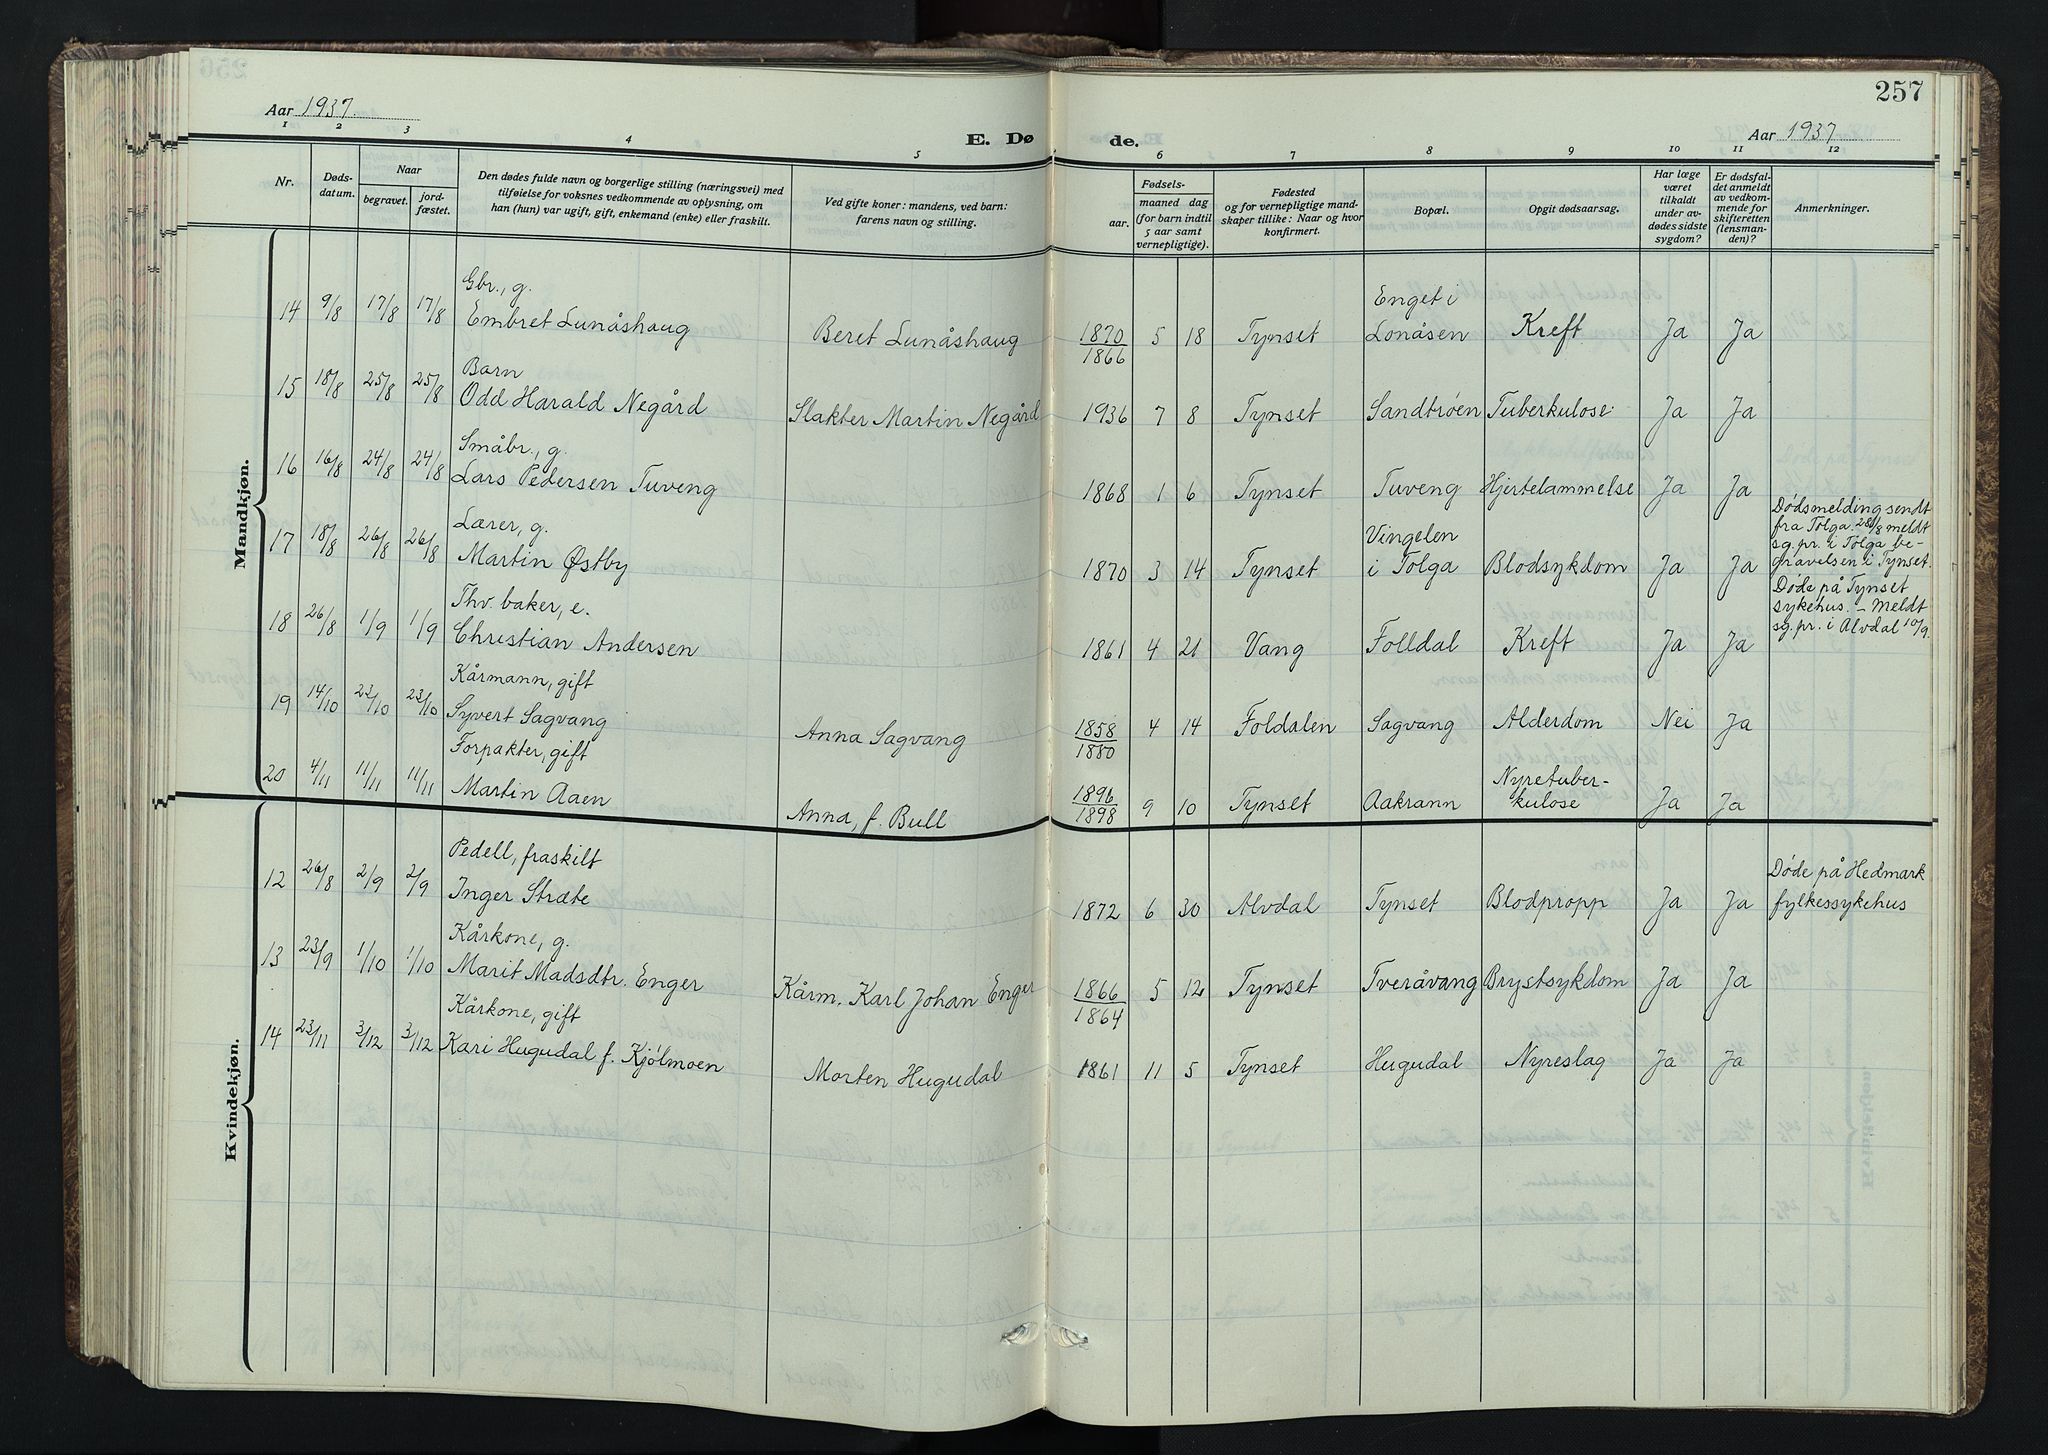 257
Aar 1937.
Aar 1937
E. Dø de.
1 2 3 4 5 6 7 8 9 10 11 12
Nr.
Døds-
datum.
Naar
begravet.
jord-
fæstet.
Den dødes fulde navn og borgerlige stilling (næringsvei) med
tilføielse for voksnes vedkommende av oplysning, om
han (hun) var ugift, gift, enkemand (enke) eller fraskilt.
Ved gifte koner: mandens, ved barn:
farens navn og stilling.
Fødsels-
aar.
maaned dag
(for barn indtil
5 aar samt
vernepligtige).
Fødested
og for vernepligtige mand-
skaper tillike: Naar og hvor
konfirmert.
Bopæl.
Opgit dødsaarsag.
Har læge
været
tilkaldt
under av-
dødes sidste
sygdom?
Er dødsfal-
det anmeldt
av vedkom-
mende for
skifteretten
(lensman-
den)?
Anmerkninger.
Mandkjøn.
Gbr., g. Enget i
14 9/8 17/8 17/8 Embret Lunåshaug Beret Lunåshaug 1870 5 18 Tynset Lonåsen Kreft Ja Ja
1866
Barn
15 18/8 25/8 25/8 Odd Harald Negård Slakter Martin Negård 1936 7 8 Tynset Sandtrøen Tuberkulose Ja Ja
Småbr., g.
16 16/8 24/8 24/8 Lars Pedersen Tuveng 1868 1 6 Tynset Tuveng Hjertelammelse Ja Ja
Lærer, g. Vingelen
17 18/8 26/8 26/8 Martin Østby 1870 3 14 Tynset i Tolga Blodsykdom Ja Ja
Dødsmelding sendt
fra Tolga. 28/8 meldt
sg.pr. i Tolga be-
gravelsen i Tynset.
Thv. baker, e.
18 26/8 1/9 1/9 Christian Andersen 1861 4 21 Vang Folldal Kreft Ja Ja
Døde på Tynset
sykehus. - Meldt
sg.pr. i Alvdal 10/9.
Kårmann, gift
19 14/10 23/10 23/10 Syvert Sagvang Anna Sagvang 1858 4 14 Foldalen Sagvang Alderdom Nei Ja
1880
Forpakter, gift Nyretuber-
20 4/11 11/11 11/11 Martin Aaen Anna, f. Bull 1896 9 10 Tynset Aakrann kulose Ja Ja
1898
Kvindekjøn.
Pedell, fraskilt Døde på Hedmark
12 26/8 2/9 2/9 Inger Stræte 1872 6 30 Alvdal Tynset Blodpropp Ja Ja fylkessykehus
Kårkone, g.
13 23/9 1/10 1/10 Marit Madsdtr. Enger Kårm. Karl Johan Enger 1866 5 12 Tynset Tveråvang Brystsykdom Ja Ja
1864
Kårkone, gift
14 23/11 3/12 3/12 Kari Hugudal f. Kjølmoen Morten Hugudal 1861 11 5 Tynset Hugudal Nyreslag Ja Ja